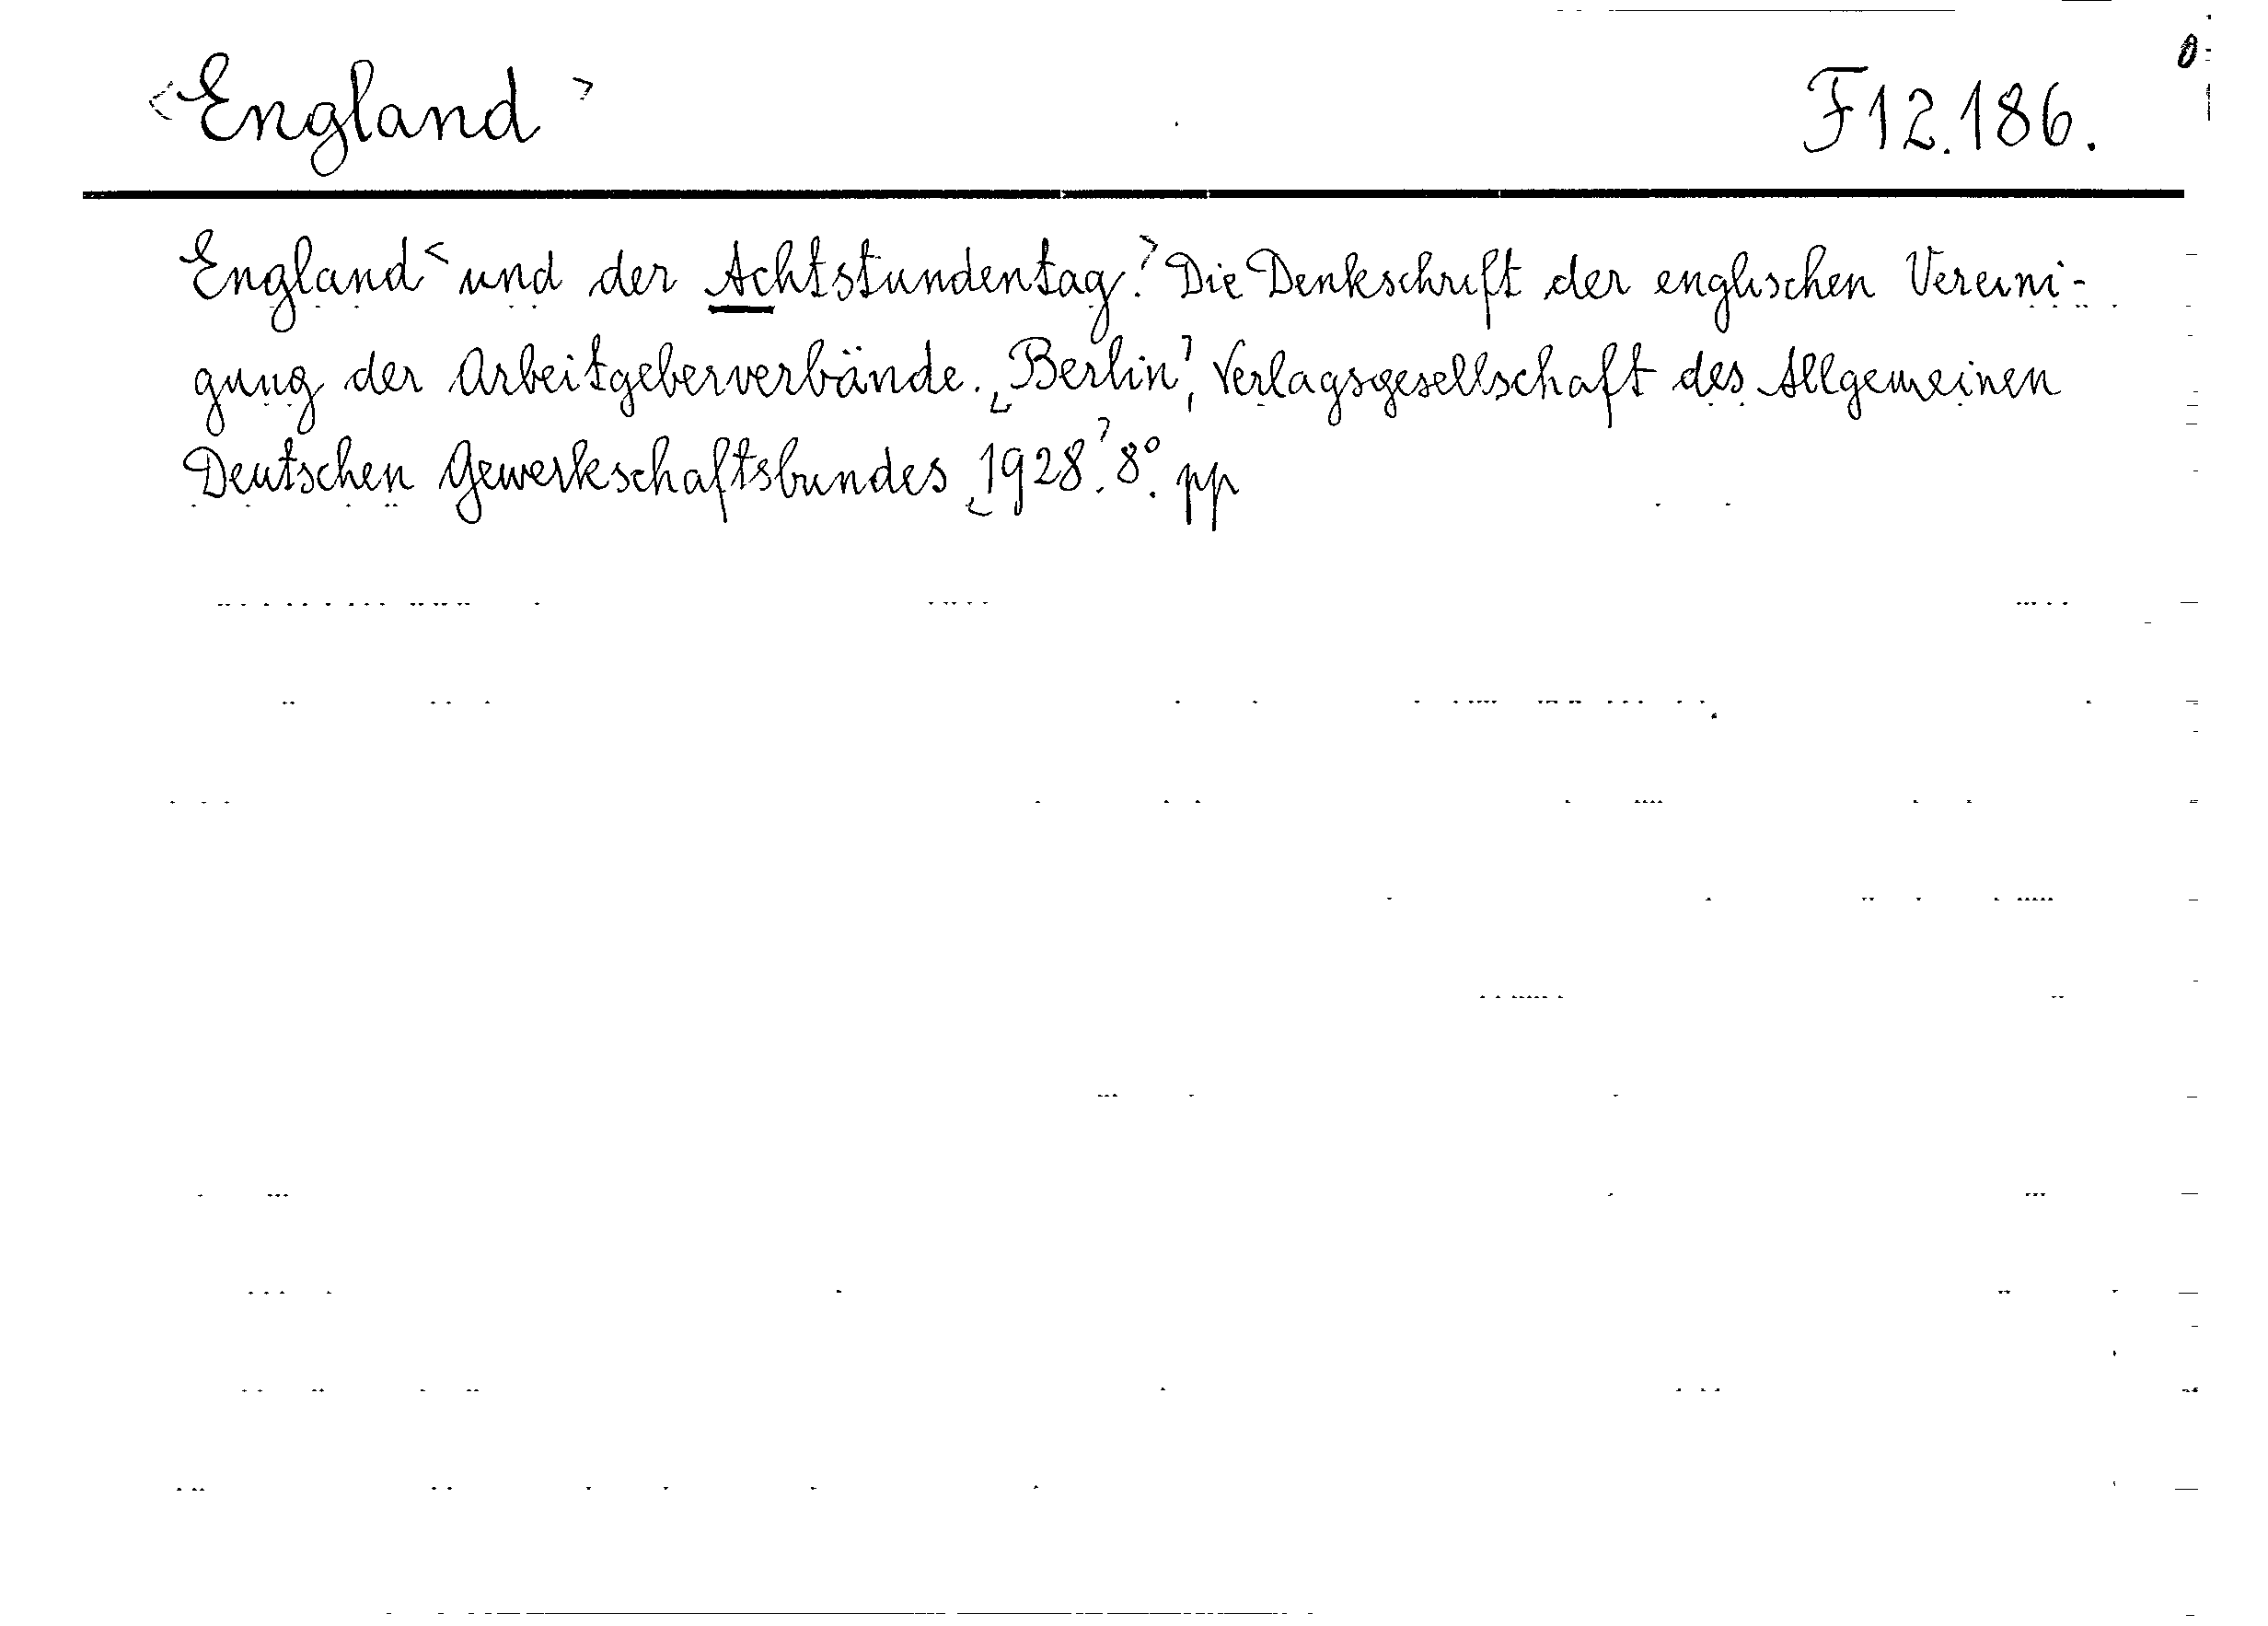 <England>
F12.186.
England< und der Achtstundentag.> Die Denkschrift der englischen Vereini-
gung der Arbeitgeberverbände. <Berlin>, Verlagsgesellschaft des Allgemeinen
Deutschen Gewerkschaftsbundes <1928.> 8°. pp